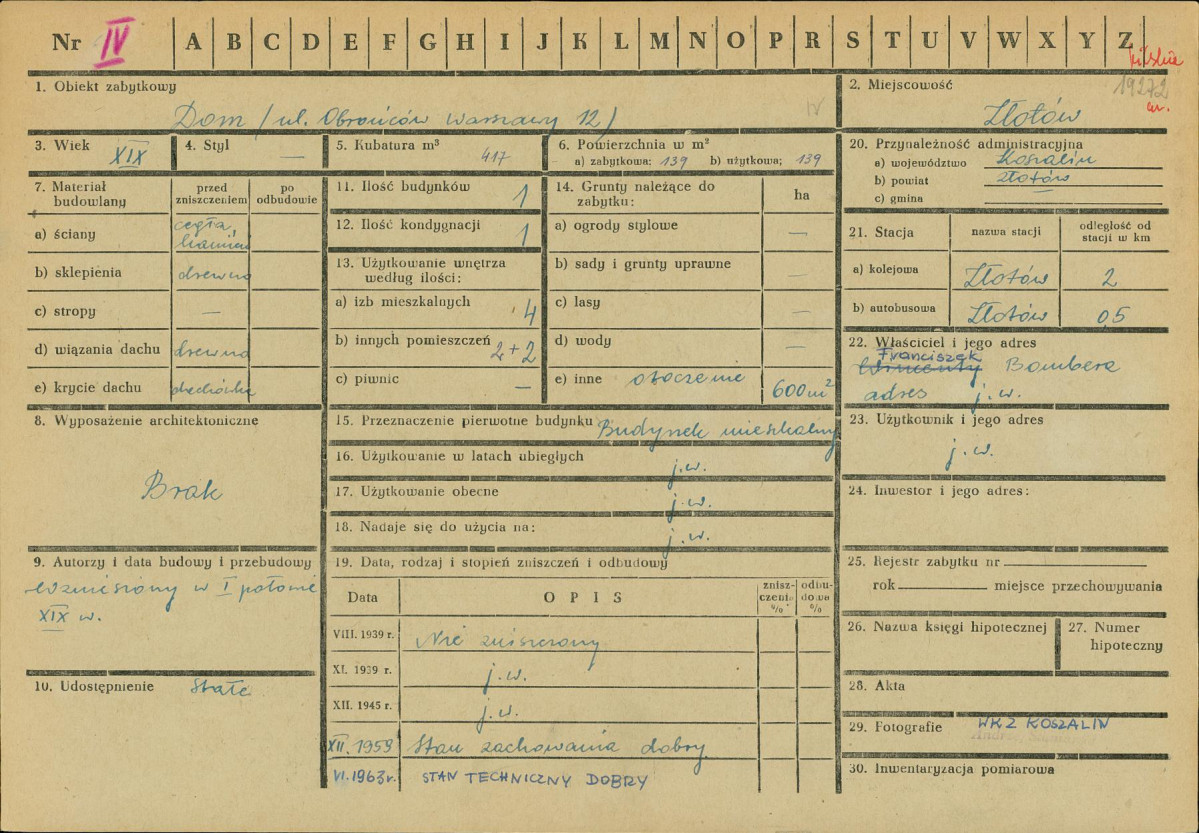 Nr IV A B C D E F G H I J K L M N O P R S T U V W X Y Z
19272
1. Obiekt zabytkowy
Dom (ul. Obrońców Warszawy 12)
IV
2. Miejscowość
Złotów
3. Wiek XIX
4. Styl —
5. Kubatura m³ 417
6. Powierzchnia w m²
a) zabytkowa: 139 b) użytkowa: 139
20. Przynależność administracyjna
a) województwo Koszalin
b) powiat Złotów
c) gmina
7. Materiał budowlany
przed zniszczeniem
po odbudowie
a) ściany cegła, kamień
b) sklepienia drewno
c) stropy —
d) wiązania dachu drewno
e) krycie dachu dachówka
11. Ilość budynków 1
12. Ilość kondygnacji 1
13. Użytkowanie wnętrza według ilości:
a) izb mieszkalnych 4
b) innych pomieszczeń 2+2
c) piwnic —
14. Grunty należące do zabytku:
ha
a) ogrody stylowe —
b) sady i grunty uprawne —
c) lasy —
d) wody —
e) inne otoczenie 600 m²
21. Stacja
nazwa stacji
odległość od stacji w km
a) kolejowa Złotów 2
b) autobusowa Złotów 0,5
22. Właściciel i jego adres
Franciszek
Bombera
adres j.w.
8. Wyposażenie architektoniczne
Brak
15. Przeznaczenie pierwotne budynku Budynek mieszkalny
16. Użytkowanie w latach ubiegłych j.w.
17. Użytkowanie obecne j.w.
18. Nadaje się do użycia na: j.w.
23. Użytkownik i jego adres
j.w.
24. Inwestor i jego adres:
9. Autorzy i data budowy i przebudowy
Wzniesiony w I połowie
XIX w.
10. Udostępnienie Stałe
19. Data, rodzaj i stopień zniszczeń i odbudowy
Data
OPIS
znisz-czenia %
odbu-dowa %
VIII. 1939 r. Nie zniszczony
XI. 1939 r. j.w.
XII. 1945 r. j.w.
XII. 1959 Stan zachowania dobry
VI. 1963 r. STAN TECHNICZNY DOBRY
25. Rejestr zabytku nr
rok miejsce przechowywania
26. Nazwa księgi hipotecznej
27. Numer hipoteczny
28. Akta
29. Fotografie WKZ KOSZALIN
30. Inwentaryzacja pomiarowa